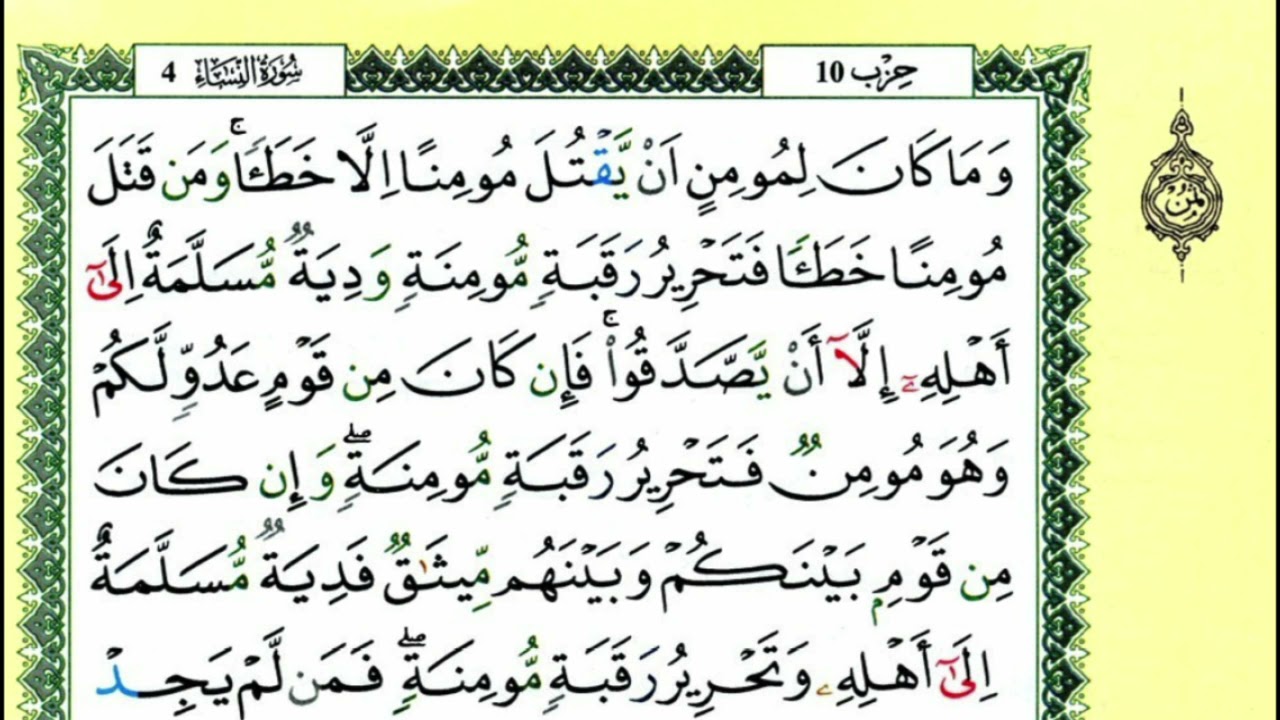 حِزْب 10
سُورَةُ النِّسَاءِ 4
وَمَا كَانَ لِمُومِنٍ اَنْ يَّقْتُلَ مُومِنًا اِلَّا خَطَـًٔاۚ وَمَن قَتَلَ
مُومِنًا خَطَـًٔا فَتَحْرِيرُ رَقَبَةٍ مُّومِنَةٍ وَدِيَةٌ مُّسَلَّمَةٌ اِلَىٰٓ
أَهْلِهِۦٓ إِلَّآ أَنْ يَّصَّدَّقُواْۚ فَإِن كَانَ مِن قَوْمٍ عَدُوٍّ لَّكُمْ
وَهُوَ مُومِنٌ فَتَحْرِيرُ رَقَبَةٍ مُّومِنَةٍۖ وَإِن كَانَ
مِن قَوْمِۭ بَيْنَكُمْ وَبَيْنَهُم مِّيثَٰقٌ فَدِيَةٌ مُّسَلَّمَةٌ
اِلَىٰٓ أَهْلِهِۦ وَتَحْرِيرُ رَقَبَةٍ مُّومِنَةٍۖ فَمَن لَّمْ يَجِدْ
ثمن